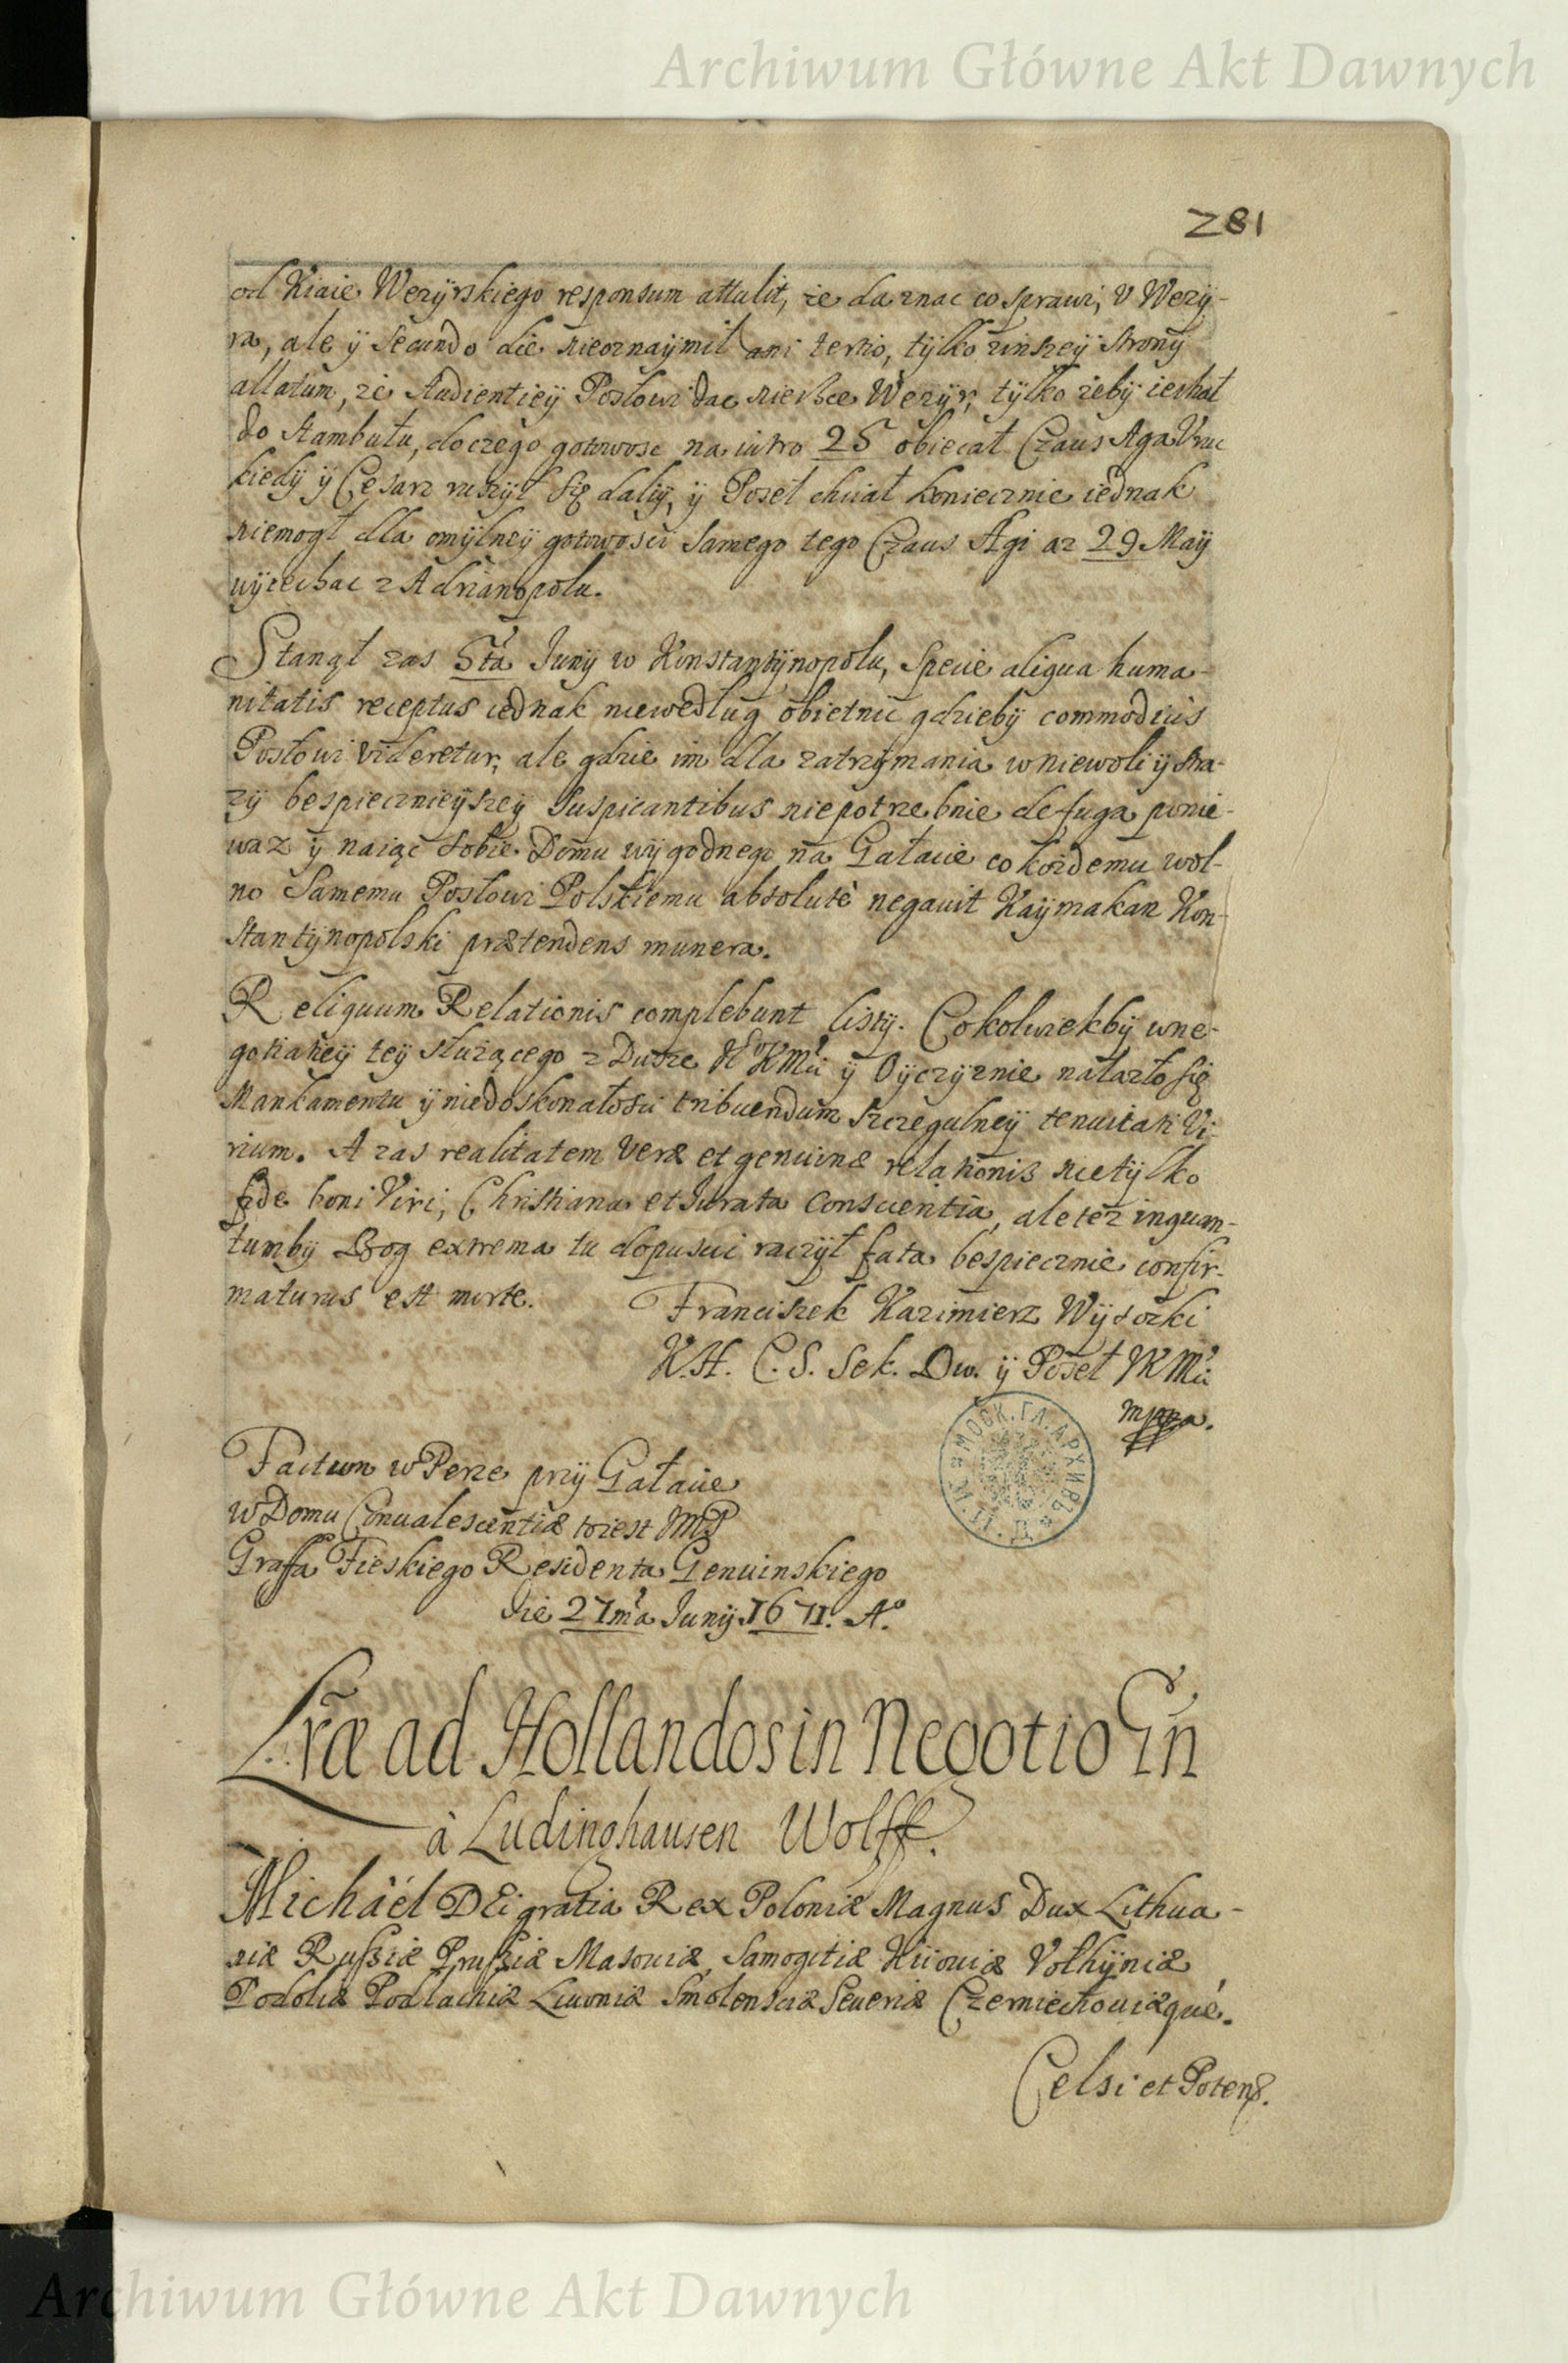 Archiwum Główne Akt Dawnych
281
od Kiaie Wezÿrskiego responsum attulit, że da znac co sprawi, V Wezÿ-
ra, ale ÿ secundo die nieoznaÿmił ani tertio, tÿlko zinszeÿ stronÿ
allatum, że Audientieÿ Posłowi dac niechce Wezÿr, tÿlko żebÿ iechał
do Stambułu, do czego gotowosc na iutro 25 obiecał Czaus Aga
kiedÿ ÿ Cesarz ruszÿł się daliÿ, ÿ Poseł chciał koniecznie iednak
niemogł dla omÿlneÿ gotowosci samego tego Czaus Agi az 29 Maÿ
wÿiechac z Adrianopolu.
Stanął zas 5ta Junÿ w Konstantÿnopolu, specie aliqua huma-
nitatis receptus iednak niewedlug obietnic gdziebÿ commodius
Posłowi videretur, ale gdzie im dla zatrzÿmania w niewoli ÿ stra-
zÿ bespiecznieÿszeÿ suspicantibus niepotrzebnie de fuga ponie-
waz ÿ naiąc sobie Domu wÿgodnego na Gałacie co kożdemu wol-
no samemu Posłowi Polskiemu absolutè negavit Kaÿmakan Kon-
stantÿnopolski prætendens munera.
Reliquum Relationis complebunt listÿ. Cokolwiekbÿ wne-
gotiatieÿ teÿ służącego z Dusze WKMci ÿ Oÿczÿznie nalazło się
Mankamentu ÿ niedoskonałosci tribuendum szczegulneÿ tenuitati Vi-
rium. A zas realitatem veræ et genuinæ relationis nietÿlko
fide boni Viri, Christiana et Jurata Conscientia, ale tez inquan-
tumbÿ Bog extrema tu dopuscic raczÿł fata bespiecznie confir-
maturus est morte.
Franciszek Kazimierz Wÿsocki
W.H. C. S. Sek. Dw. ÿ Poseł JKMci
mppa.
МОСК. ГЛ. АРХИВЪ
Factum w Perze przÿ Gałacie
w Domu Convalescentiæ toiest JMP
Graffa Fieskiego Residenta Genuinskiego
die 27ma Junÿ 1671. A°.
Lræ ad Hollandos in Negotio Gn
à Ludinghausen Wolff.
Michaël DEi gratia Rex Poloniæ Magnus Dux Lithua-
niæ Russiæ Prussiæ Masoviæ, Samogitiæ Kiioviæ Volhÿniæ
Podoliæ Podlachiæ Livoniæ Smolensciæ Severiæ Czerniechoviæque.
Celsi et Poten.
Archiwum Główne Akt Dawnych